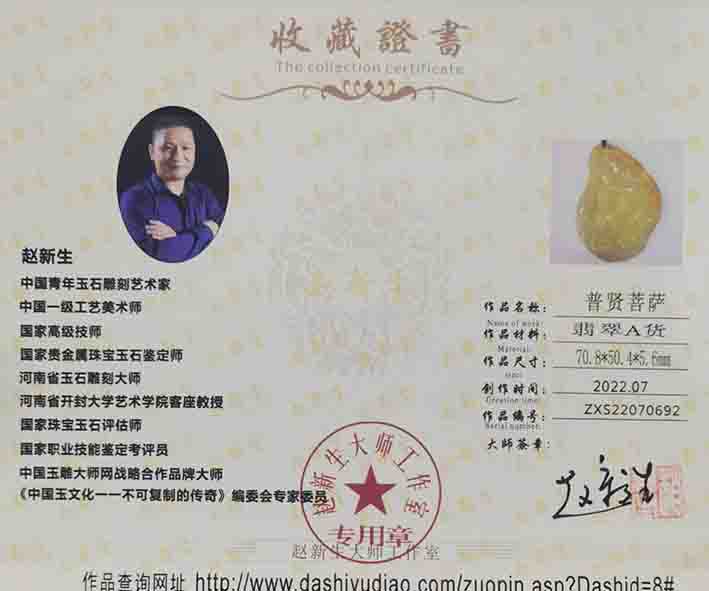 收藏證書
The collection certificate
赵新生
中国青年玉石雕刻艺术家
中国一级工艺美术师
国家高级技师
国家贵金属珠宝玉石鉴定师
河南省玉石雕刻大师
河南省开封大学艺术学院客座教授
国家珠宝玉石评估师
国家职业技能鉴定考评员
中国玉雕大师网战略合作品牌大师
《中国玉文化一一不可复制的传奇》编委会专家委员
作品名称: 普贤菩萨
Name of work:
作品材料: 翡翠A货
Material:
作品尺寸: 70.8*50.4*5.6mm
size:
创作时间: 2022.07
Creation time:
作品编号: ZXS22070692
Serial number:
大师签章:
赵新生
赵新生大师工作室
专用章
赵新生大师工作室
作品查询网址 http://www.dashiyudiao.com/zuopin.asp?Dashid=8#